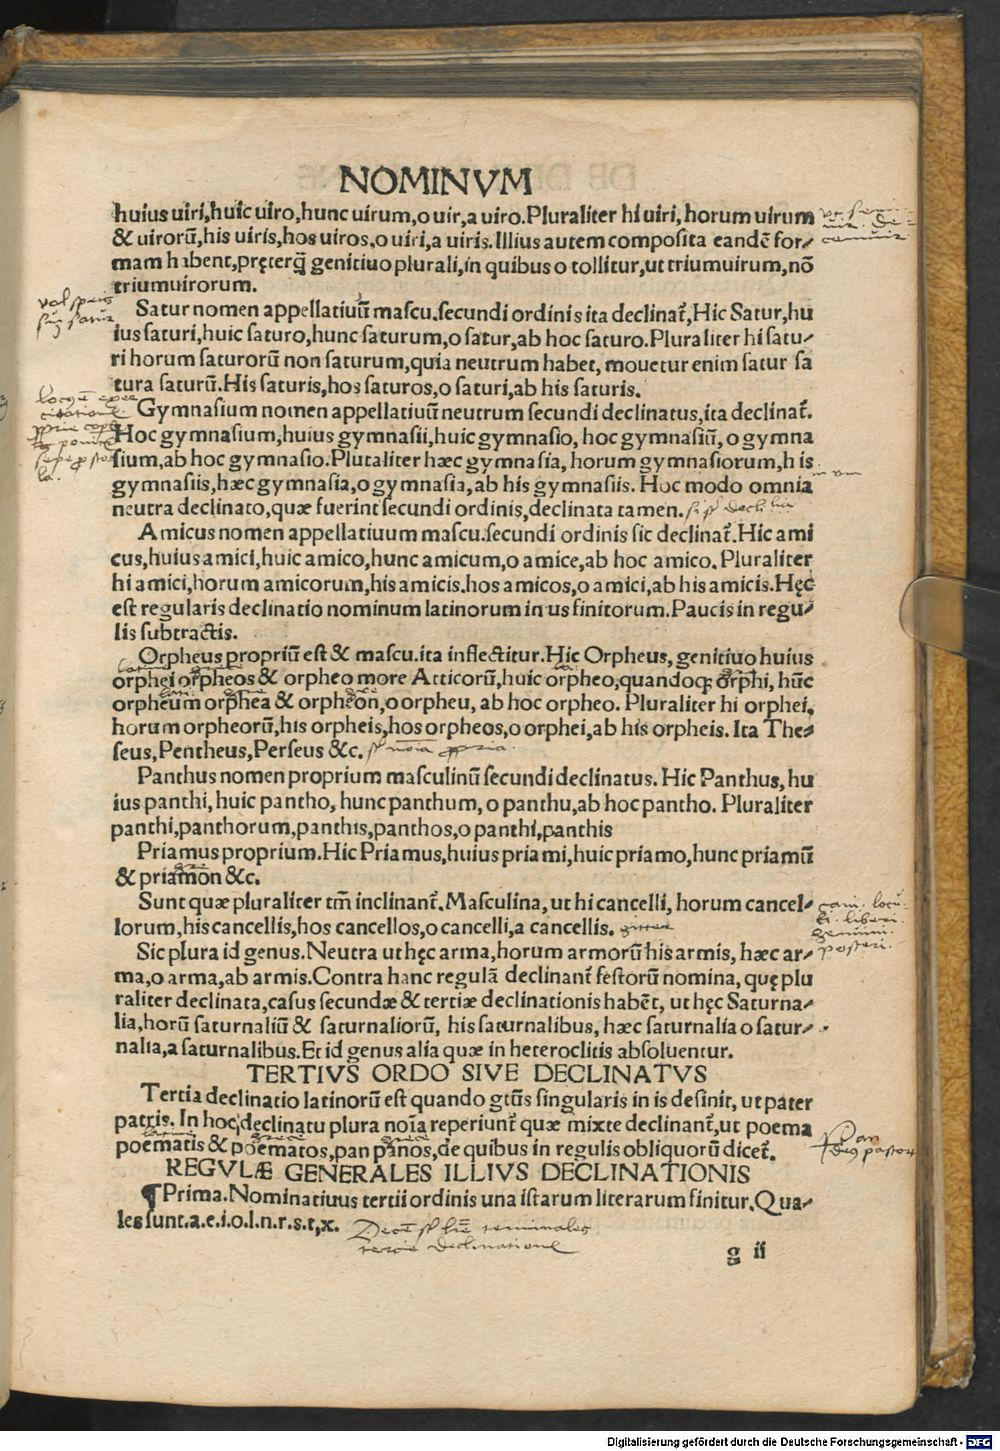 NOMINVM
huius uiri,huic uiro,hunc uirum,o uir,a uiro.Pluraliter hi uiri, horum uirum
& uirorũ,his uiris,hos uiros,o uiri,a uiris.Illius autem composita eandẽ for⸗
mam habent,pręterq̃ genitiuo plurali,in quibus o tollitur,ut triumuirum,nõ
triumuirorum.
Satur nomen appellatiuũ mascu.secundi ordinis ita declinat̃,Hic Satur,hu
ius saturi,huic saturo,hunc saturum,o satur,ab hoc saturo.Pluraliter hi satu⸗
ri horum saturorũ non saturum,quia neutrum habet, mouetur enim satur sa
tura saturũ.His saturis,hos saturos,o saturi,ab his saturis.
Gymnasium nomen appellatiuũ neutrum secundi declinatus,ita declinat̃.
Hoc gymnasium,huius gymnasii,huic gymnasio, hoc gymnasiũ, o gymna
sium,ab hoc gymnasio.Pluraliter hæc gymnasia, horum gymnasiorum,his
gymnasiis,hæc gymnasia,o gymnasia,ab his gymnasiis. Hoc modo omnia
neutra declinato,quæ fuerint secundi ordinis,declinata tamen.
Amicus nomen appellatiuum mascu.secundi ordinis sic declinat̃.Hic ami
cus,huius amici,huic amico,hunc amicum,o amice,ab hoc amico. Pluraliter
hi amici,horum amicorum,his amicis.hos amicos,o amici,ab his amicis.Hęc
est regularis declinatio nominum latinorum in us finitorum.Paucis in regu⸗
lis subtractis.
Orpheus propriũ est & mascu.ita inflectitur.Hic Orpheus, genitiuo huius
orphei orpheos & orpheo more Atticorũ,huic orpheo,quandoqꝫ orphi, hũc
orpheum orphea & orpheon,o orpheu, ab hoc orpheo. Pluraliter hi orphei,
horum orpheorũ,his orpheis,hos orpheos,o orphei,ab his orpheis. Ita The⸗
seus,Pentheus,Perseus &c.
Panthus nomen proprium masculinũ secundi declinatus. Hic Panthus, hu
ius panthi, huic pantho, hunc panthum, o panthu,ab hoc pantho. Pluraliter
panthi,panthorum,panthis,panthos,o panthi,panthis
Priamus proprium.Hic Priamus,huius priami,huic priamo,hunc priamũ
& priamon &c.
Sunt quæ pluraliter tm̃ inclinant̃.Masculina, ut hi cancelli, horum cancel⸗
lorum,his cancellis,hos cancellos,o cancelli,a cancellis.
Sic plura id genus.Neutra ut hęc arma,horum armorũ his armis, hæc ar⸗
ma,o arma,ab armis.Contra hanc regulã declinant̃ festorũ nomina, quę plu
raliter declinata,casus secundæ & tertiæ declinationis habẽt, ut hęc Saturna⸗
lia,horũ saturnaliũ & saturnaliorũ, his saturnalibus, hæc saturnalia o satur⸗
nalia,a saturnalibus.Et id genus alia quæ in heteroclitis absoluentur.
TERTIVS ORDO SIVE DECLINATVS
Tertia declinatio latinorũ est quando gtũs singularis in is desinit, ut pater
patris. In hoc declinatu plura noĩa reperiunt̃ quæ mixte declinant̃,ut poema
poematis & poematos,pan panos,de quibus in regulis obliquorũ dicet̃.
REGVLÆ GENERALES ILLIVS DECLINATIONIS
¶ Prima.Nominatiuus tertii ordinis una istarum literarum finitur.Qua⸗
les sunt.a.e.i.o.l.n.r.s.t,x.
g ii
Digitalisierung gefördert durch die Deutsche Forschungsgemeinschaft - DFG